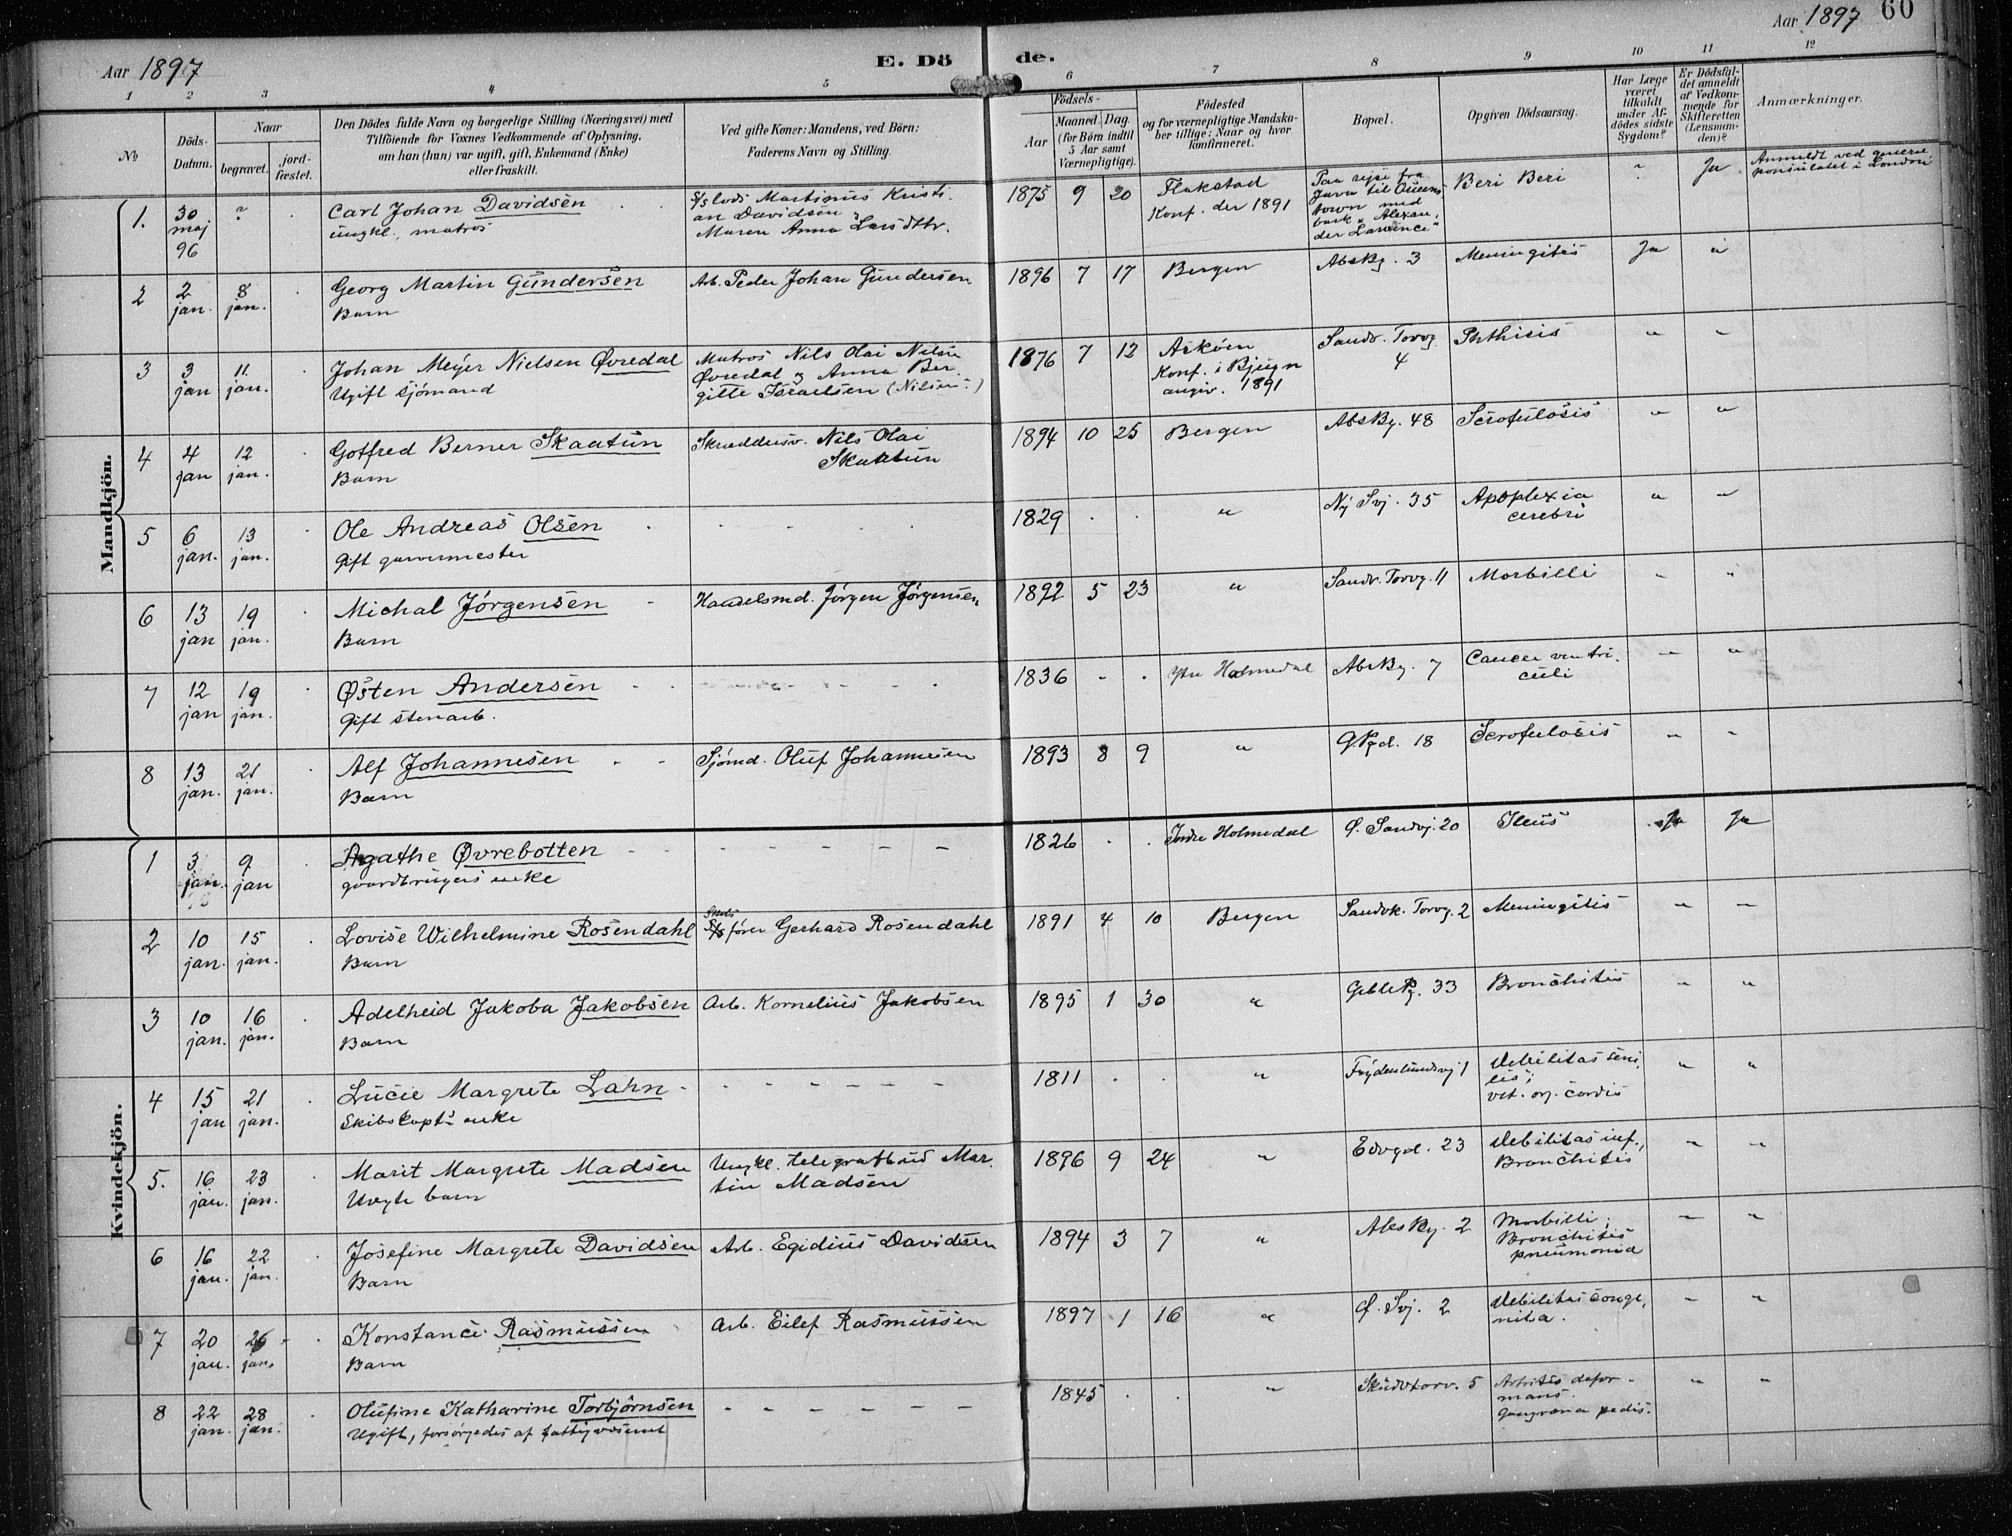 Aar 1897
E. Dö de.
Aar 1897 60
1 2 3 4 5 6 7 8 9 10 11 12
No
Döds-
Datum.
Naar
begravet. jord-
fæstet.
Den Dödes fulde Navn og borgerlige Stilling (Næringsvei) med
Tilföiende for Voxnes Vedkommende af Oplysning,
om han (hun) var ugift, gift, Enkemand (Enke)
eller fraskilt.
Ved gifte Koner: Mandens, ved Börn:
Faderens Navn og Stilling.
Födsels-
Aar Maaned. Dag.
(for Börn indtil
5 Aar samt
Værnepligtige).
Födested
og for værnepligtige Mandska-
ber tillige: Naar og hvor
konfirmeret.
Bopæl.
Opgiven Dödsaarsag.
Har Læge
været
tilkaldt
under Af-
dödes sidste
Sygdom?
Er Dödsfal-
det anmeldt
af Vedkom-
mende for
Skifteretten
(Lensman-
den)?
Anmærkninger.
Mandkjön.
1. 30 maj 96 ? Carl Johan Davidsen
ungkl., matros
lods Martinus Kristi-
an Davidsen
Maren Anna Larsdtr.
1875 9 20 Flakstad
Konf. der 1891
Paa rejse fra
Java til Queens-
town med
bark "Alexan-
der Lawrence"
Beri Beri ? Ja Anmeldt ved general
konsulatet i London
2 2 jan. 8 jan. Georg Martin Gundersen
Barn
Arb. Peder Johan Gundersen 1896 7 17 Bergen AbsBg. 3 Meningitis Ja "
3 3 jan 11 jan. Johan Meyer Nielsen Øvredal
Ugift sjömand
Matros Nils Olai Nilsen
Øvredal og Anna Ber-
gitte Israelsen (Nilsen)
1876 7 12 Askøen
Konf. i Bjugn
angiv. 1891
Sandv. Torvg.
4
Phthisis " "
4 4 jan 12 jan. Gotfred Berner Skaatun
Barn
Skræddersv. Nils Olai
Skaatun
1894 10 25 Bergen AbsBg. 48 Scrofulosis " "
5 6 jan. 13 jan. Ole Andreas Olsen
Gift garvermester
1829 " Ny Svj. 35 Apoplexia
cerebri " "
6 13 jan 19 jan. Michal Jørgensen
Barn
Handelsmd. Jørgen Jørgensen 1892 5 23 " Sandv. Torvg. 11 Morbilli " "
7 12 jan 19 jan. Østen Andersen
Gift stenarb.
1836 Ytre Holmedal AbsBg. 7 Cancer ventri-
culi " "
8 13 jan. 21 jan. Alf Johannesen
Barn
Sjømd. Oluf Johannesen 1893 8 9 " 18 Scrofulosis " "
Kvindekjön.
1 3 jan. 9 jan Agathe Øvrebotten
gaardbrugers enke
1826 Indre Holmedal Ø. Sandvj. 20 Ileus Ja Ja
2 10 jan. 15 jan. Lovise Wilhelmine Rosendahl
Barn
Skibs
fører Gerhard Rosendahl 1891 4 10 Bergen Sandvk. Torvg. 2 Meningitis " "
3 10 jan. 16 jan. Adelheid Jakoba Jakobsen
Barn
Arb. Kornelius Jakobsen 1895 1 30 " 33 Bronchitis " "
4 15 jan 21 jan. Lucie Margrete Lahn
Skibskapt's enke
1811 " Frydenlundsvj 1 Debilitas seni-
lis;
vit. org. cordis " "
5. 16 jan. 23 jan. Marit Margrete Madsen
Uægte barn
Ungkl. telegrafbud Mar-
tin Madsen
1896 9 24 " 23 Debilitas inf.,
Bronchitis " "
6 16 jan. 22 jan. Josefine Margrete Davidsen
Barn
Arb. Egidius Davidsen 1894 3 7 " AbsBg. 2 Morbilli;
Bronchitis
pneumonia " "
7 20 jan. 26 jan. Konstance Rasmussen
Barn
Arb. Eilef Rasmussen 1897 1 16 " Ø. Svj. 2 Debilitas conge-
nita. " "
8 22 jan. 28 jan. Olufine Katharine Torbjørnsen
Ugift, forsørgedes af fattigvæsenet
1845 " 5 Artritis defor-
mans.
Gangræna pedis. " "